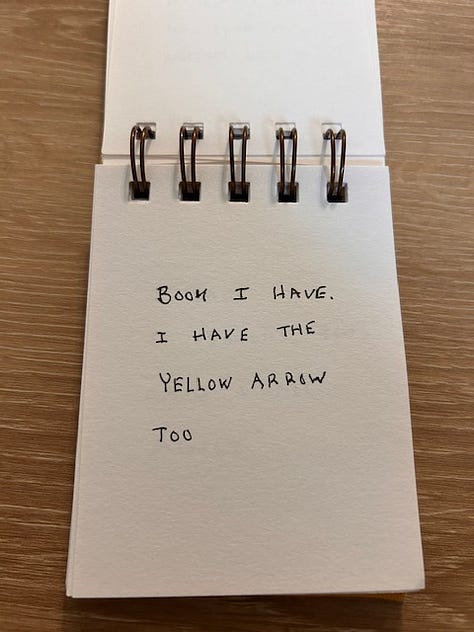 BOOK I HAVE.
I HAVE THE
YELLOW ARROW
TOO